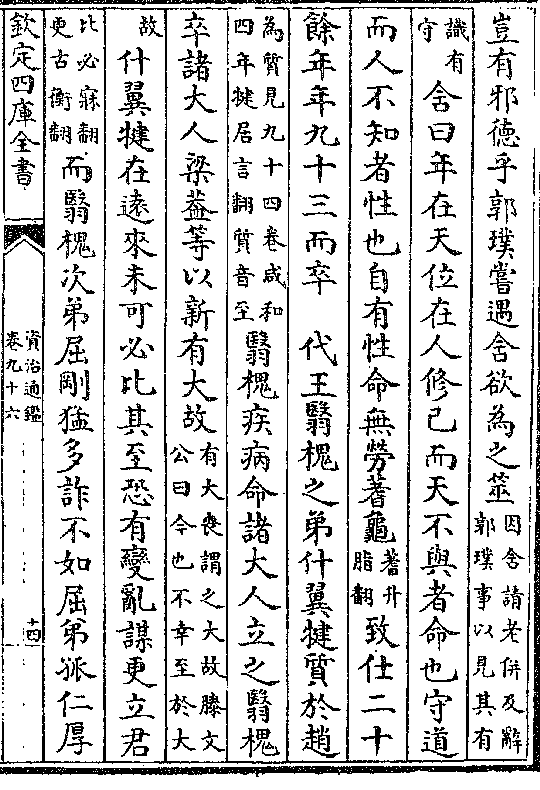 豈有邪德乎郭璞嘗遇舍欲為之筮因舍請老併及辭
郭璞事以見其有
識有
守舍曰年在天位在人修己而天不與者命也守道
而人不知者性也自有性命無勞蓍龜蓍升
脂翻致仕二十
餘年年九十三而卒　代王翳槐之弟什翼犍質於趙
為質見九十四卷咸和
四年犍居言翻質音至翳槐疾病命諸大人立之翳槐
卒諸大人梁蓋等以新有大故有大喪謂之大故滕文
公曰今也不幸至於大
故什翼犍在遠來未可必比其至恐有變亂謀更立君
比必寐翻
更古衡翻而翳槐次弟屈剛猛多詐不如屈弟孤仁厚
欽定四庫全書
資治通鑑
卷九十六
十四